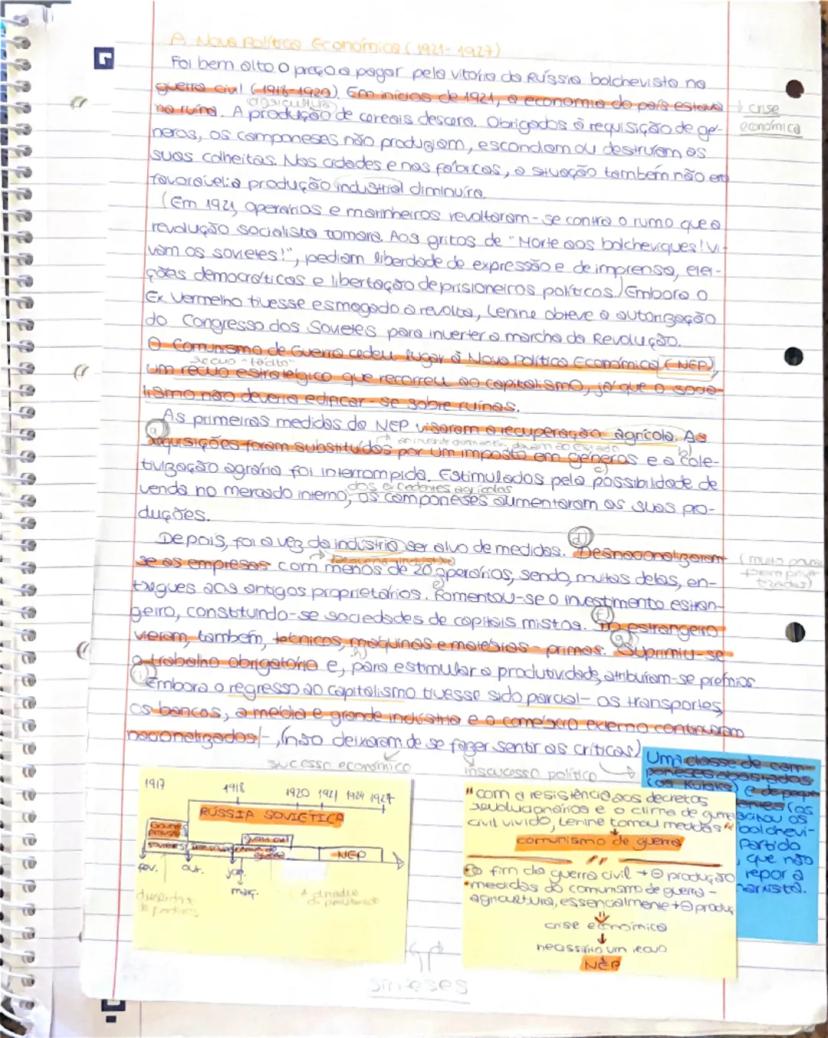 A Nova Política Económica (1921-1927)
Foi bem alto o preço a pagar pela vitória da Rússia bolchevista na
guerra civil (1918-1920). Em inícios de 1921, a economia do país estava
na ruína. A produção de cereais descera. Obrigados à requisição de gé-
agricultura
crise
económica
neros, os camponeses não produziam, escondiam ou destruíam as
suas colheitas. Nas cidades e nas fábricas, a situação também não era
favorável: a produção industrial diminuíra.
(Em 1921, operários e marinheiros revoltaram-se contra o rumo que a
revolução socialista tomara. Aos gritos de "Morte aos bolcheviques! Vi-
vam os sovietes!", pediam liberdade de expressão e de imprensa, elei-
ções democráticas e libertação de prisioneiros políticos.) Embora o
Ex. Vermelho tivesse esmagado a revolta, Lenine obteve a autorização
do Congresso dos Sovietes para inverter a marcha da Revolução.
O Comunismo de Guerra cedeu lugar à Nova Política Económica (NEP),
um recuo estratégico que recorreu ao capitalismo, já que o socia-
lismo não deveria edificar-se sobre ruínas.
As primeiras medidas da NEP visaram a recuperação agrícola. As
a)
requisições foram substituídas por um imposto em géneros e a cole-
b)
tivização agrária foi interrompida. Estimulados pela possibilidade de
c)
venda no mercado interno, os camponeses aumentaram as suas pro-
dos excedentes agrícolas
duções.
Depois, foi a vez da indústria ser alvo de medidas. Desnacionalizaram-
d)
se as empresas com menos de 20 operários, sendo, muitas delas, en-
tregues aos antigos proprietários. Fomentou-se o investimento estran-
e)
geiro, constituindo-se sociedades de capitais mistos. Do estrangeiro
f)
vieram, também, técnicos, máquinas e matérias-primas. Suprimiu-se
g)
o trabalho obrigatório e, para estimular a produtividade, atribuíram-se prémios
h)
i)
Embora o regresso ao capitalismo tivesse sido parcial - os transportes,
os bancos, a média e grande indústria e o comércio externo continuaram
nacionalizados -, (não deixaram de se fazer sentir as críticas)
sucesso económico
insucesso político
1917
1918 1920 1921 1924 1927
RÚSSIA SOVIÉTICA
guerra civil
NEP
fev. out. jan.
mar.
"com a resistência aos decretos
revolucionários e o clima de guerra
civil vivido, Lenine tomou medidas"
comunismo de guerra
fim da guerra civil → ⊖ produção
medidas do comunismo de guerra -
agricultura, essencialmente → ⊖ produç
crise económica
necessário um recuo
NEP
Uma classe de cam-
poneses abastados
(os Kulaks) e de pequ
os
bolchevi-
Partido
, que não
repor a
marxista.
sínteses